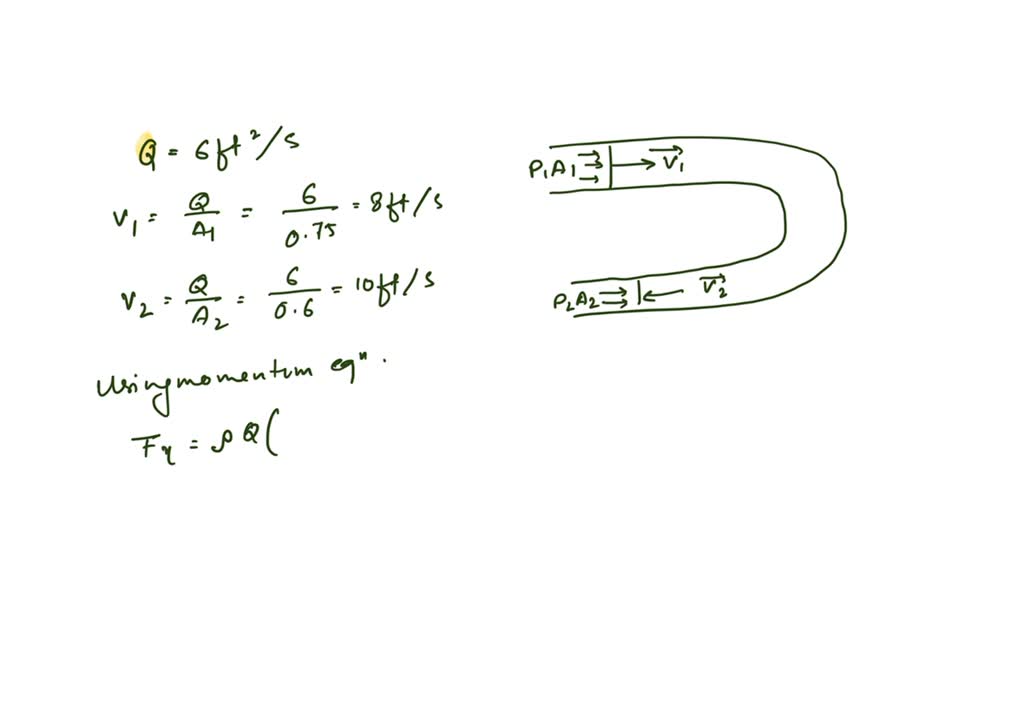 Q = 6ft²/s
V₁ = Q/A₁ = 6/0.75 = 8ft/s
V₂ = Q/A₂ = 6/0.6 = 10ft/s
Using momentum eqⁿ.
Fₓ = ρQ(
P₁A₁ V₁
P₂A₂ V₂